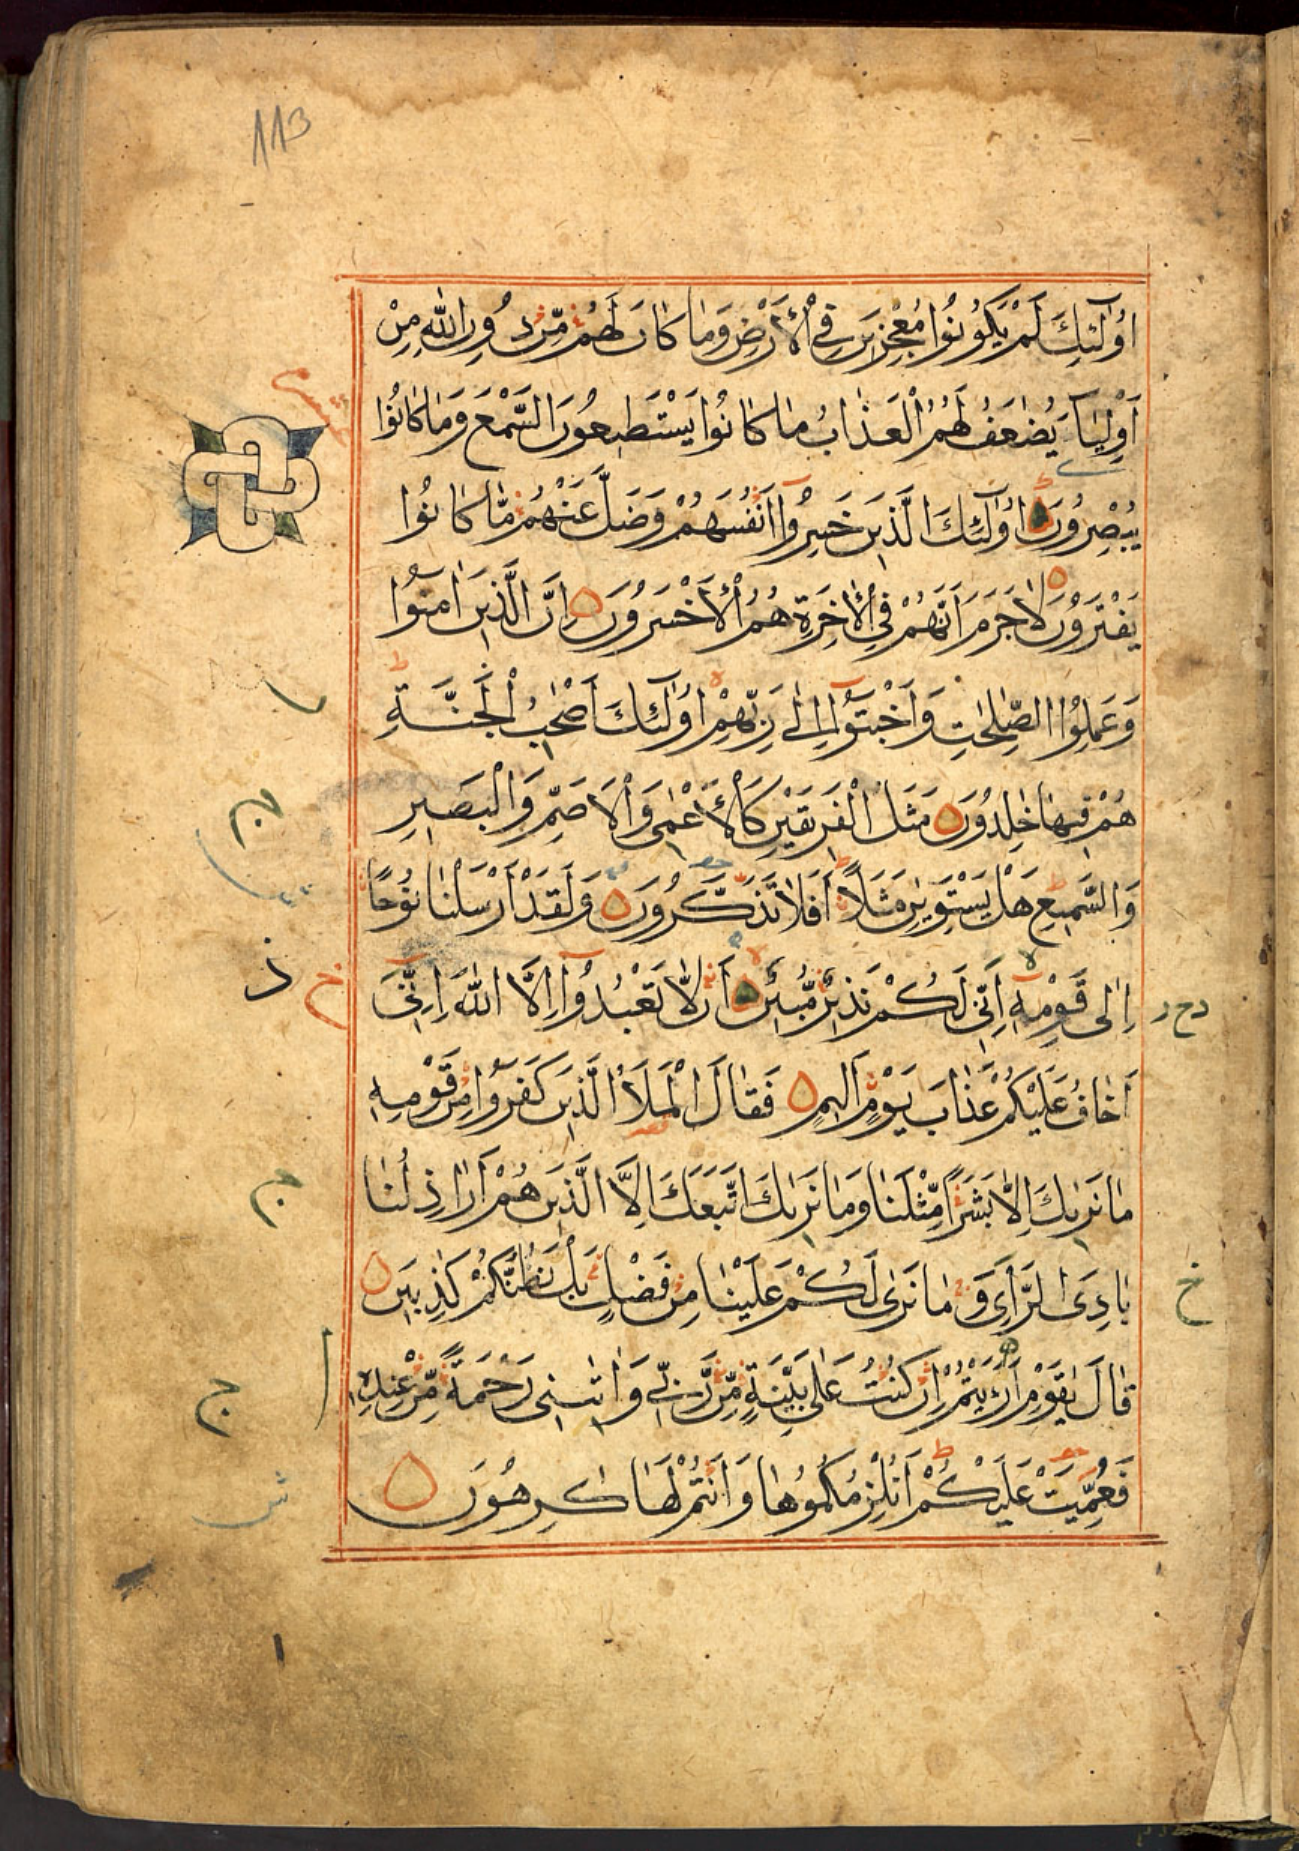 113
اُولٰٓئِكَ لَمْ يَكُونُوا مُعْجِزِينَ فِي الْاَرْضِ وَمَا كَانَ لَهُمْ مِّنْ دُونِ اللّٰهِ مِنْ
اَوْلِيَآءَ يُضٰعَفُ لَهُمُ الْعَذَابُ مَا كَانُوا يَسْتَطِيعُونَ السَّمْعَ وَمَا كَانُوا
يُبْصِرُونَ اُولٰٓئِكَ الَّذِينَ خَسِرُوٓا اَنْفُسَهُمْ وَضَلَّ عَنْهُمْ مَّا كَانُوا
يَفْتَرُونَ لَا جَرَمَ اَنَّهُمْ فِي الْاٰخِرَةِ هُمُ الْاَخْسَرُونَ اِنَّ الَّذِينَ اٰمَنُوا
وَعَمِلُوا الصّٰلِحٰتِ وَاَخْبَتُوٓا اِلٰى رَبِّهِمْ اُولٰٓئِكَ اَصْحٰبُ الْجَنَّةِ
هُمْ فِيهَا خٰلِدُونَ مَثَلُ الْفَرِيقَيْنِ كَالْاَعْمٰى وَالْاَصَمِّ وَالْبَصِيرِ
وَالسَّمِيعِ هَلْ يَسْتَوِيٰنِ مَثَلًا اَفَلَا تَذَكَّرُونَ وَلَقَدْ اَرْسَلْنَا نُوحًا
اِلٰى قَوْمِهٖٓ اِنِّي لَكُمْ نَذِيرٌ مُّبِينٌ اَنْ لَّا تَعْبُدُوٓا اِلَّا اللّٰهَ اِنِّيٓ
اَخَافُ عَلَيْكُمْ عَذَابَ يَوْمٍ اَلِيمٍ فَقَالَ الْمَلَاُ الَّذِينَ كَفَرُوا مِنْ قَوْمِهٖ
مَا نَرٰيكَ اِلَّا بَشَرًا مِّثْلَنَا وَمَا نَرٰيكَ اتَّبَعَكَ اِلَّا الَّذِينَ هُمْ اَرَاذِلُنَا
بَادِيَ الرَّاْيِ وَمَا نَرٰى لَكُمْ عَلَيْنَا مِنْ فَضْلٍ بَلْ نَظُنُّكُمْ كٰذِبِينَ
قَالَ يٰقَوْمِ اَرَءَيْتُمْ اِنْ كُنْتُ عَلٰى بَيِّنَةٍ مِّنْ رَّبِّي وَاٰتٰىنِي رَحْمَةً مِّنْ عِنْدِهٖ
فَعُمِّيَتْ عَلَيْكُمْ اَنُلْزِمُكُمُوهَا وَاَنْتُمْ لَهَا كٰرِهُونَ